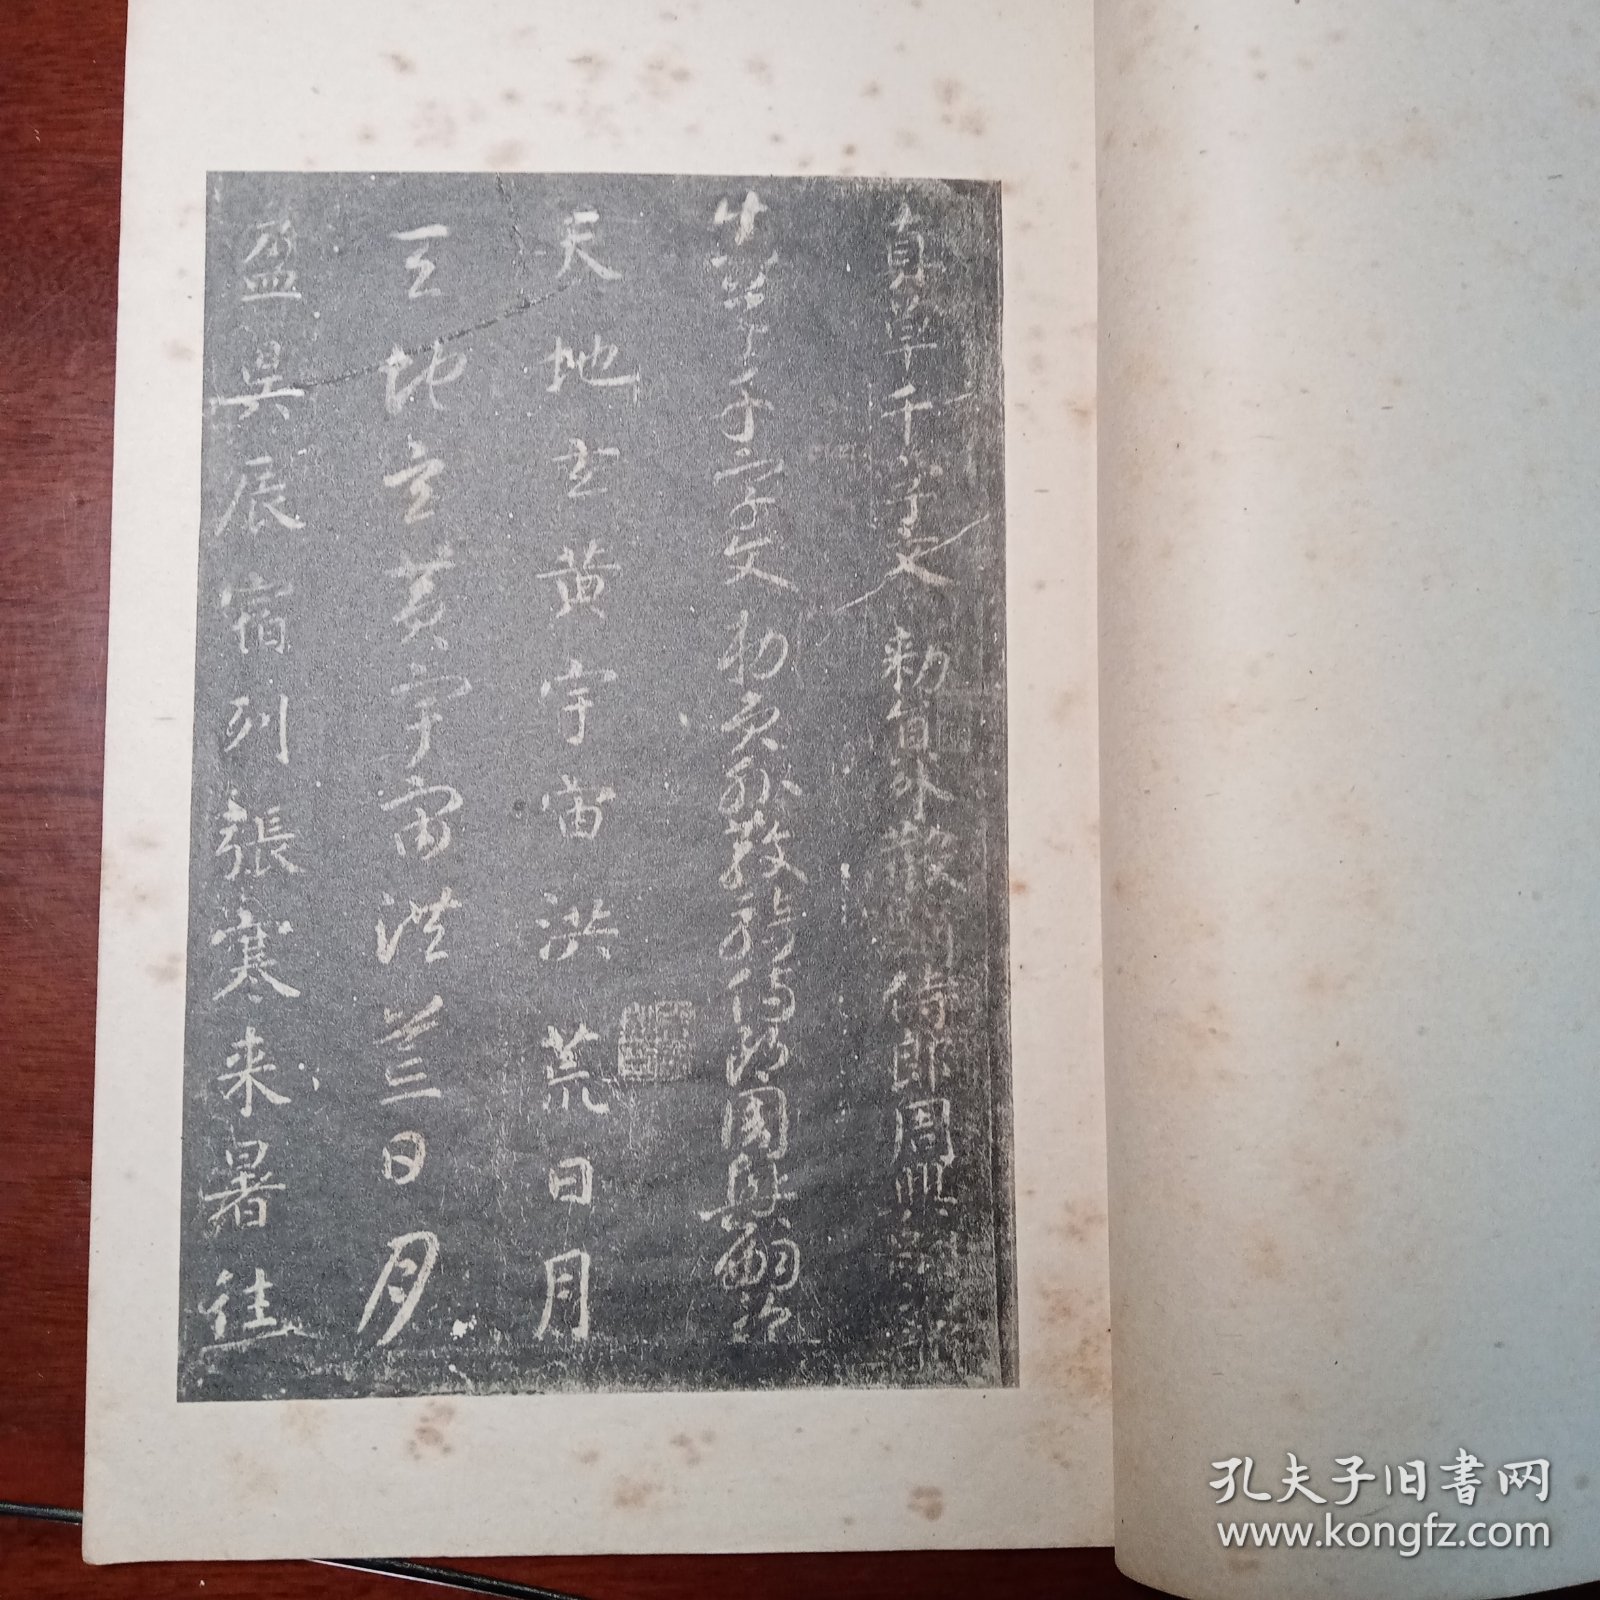 真草千字文 勅員外散騎侍郎周興嗣次韻
真草千字文勅員外散騎侍郎周興嗣次韻
天地玄黄宇宙洪荒日月
天地玄黄宇宙洪荒日月
盈昃辰宿列張寒来暑往
孔夫子旧书网
www.kongfz.com